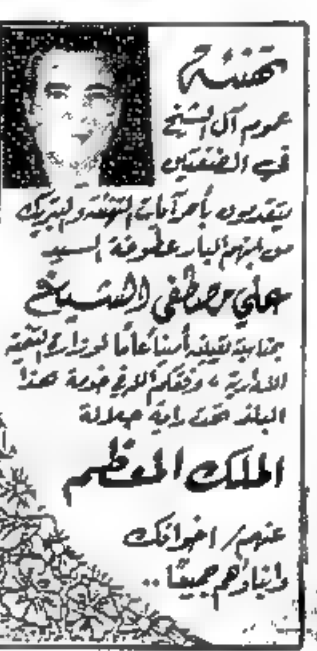 تهنئة
عموم آل الشيخ
في الضفتين
يتقدمون بأحر آيات التهنئة والتبريك
من ابنهم البار عطوفة السيد
علي مصطفى الشيخ
بمناسبة تعيينه أميناً عاماً لوزارة التنمية
الادارية، وفقكم الله في خدمة هذا
البلد تحت راية جلالة
الملك المعظم
عنهم/ اخوانك
وابناؤهم جميعاً..